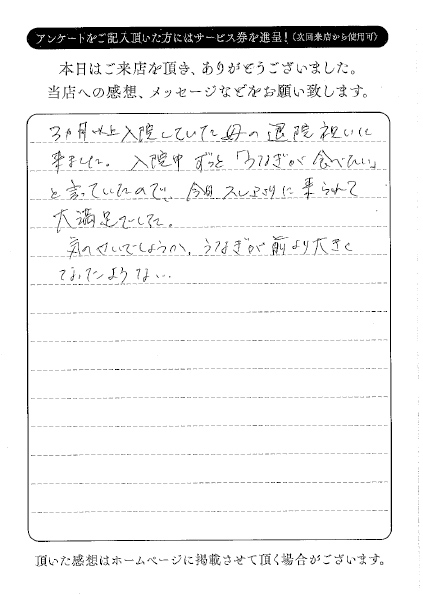 アンケートをご記入頂いた方にはサービス券を進呈！（次回来店から使用可）
本日はご来店を頂き、ありがとうございました。
当店への感想、メッセージなどをお願い致します。
3ヵ月以上入院していた母の退院祝いに
来ました。入院中ずっと「うなぎが食べたい」
と言っていたので、今日久しぶりに来られて
大満足でした。
気のせいでしょうか、うなぎが前より大きく
なったような…
頂いた感想はホームページに掲載させて頂く場合がございます。